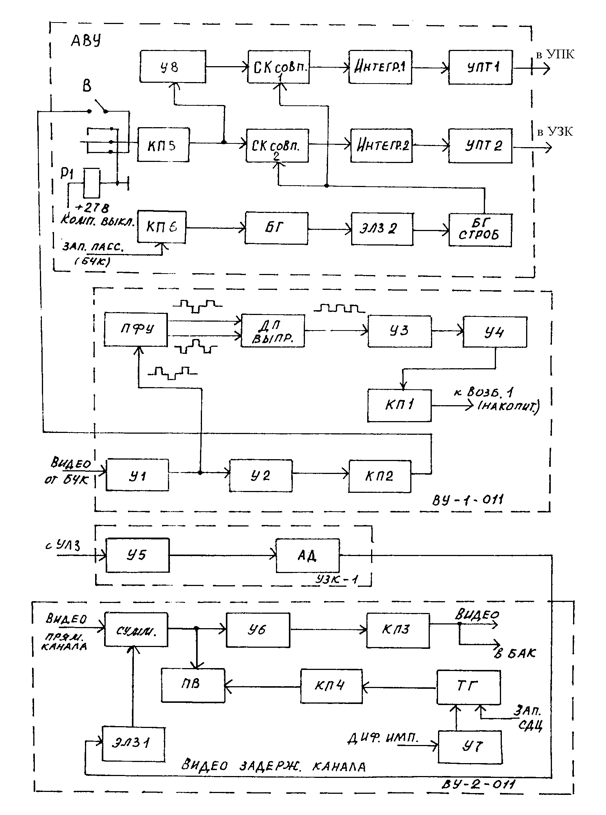 АВУ
в УПК
У8
СК совп.
1
Интегр.1
УПТ1
В
в УЗК
КП5
СК совп.
2
Интегр.2
УПТ2
Р1
+27В
Комп. выкл.
КП6
БГ
ЭЛЗ2
БГ
СТРОБ
Зап. пасс.
(БЧК)
ПФУ
ДП
ВЫПР.
У3
У4
КП1
к возб. 1
(накопит.)
Видео
от БЧК
У1
У2
КП2
ВУ-1-011
с УЛЗ
У5
АД
УЗК-1
Видео
прям.
канала
сумм.
У6
КП3
Видео
в БАК
ПВ
КП4
ТГ
Зап.
СДЦ
ЭЛЗ1
Диф. имп.
У7
Видео задерж. канала
ВУ-2-011